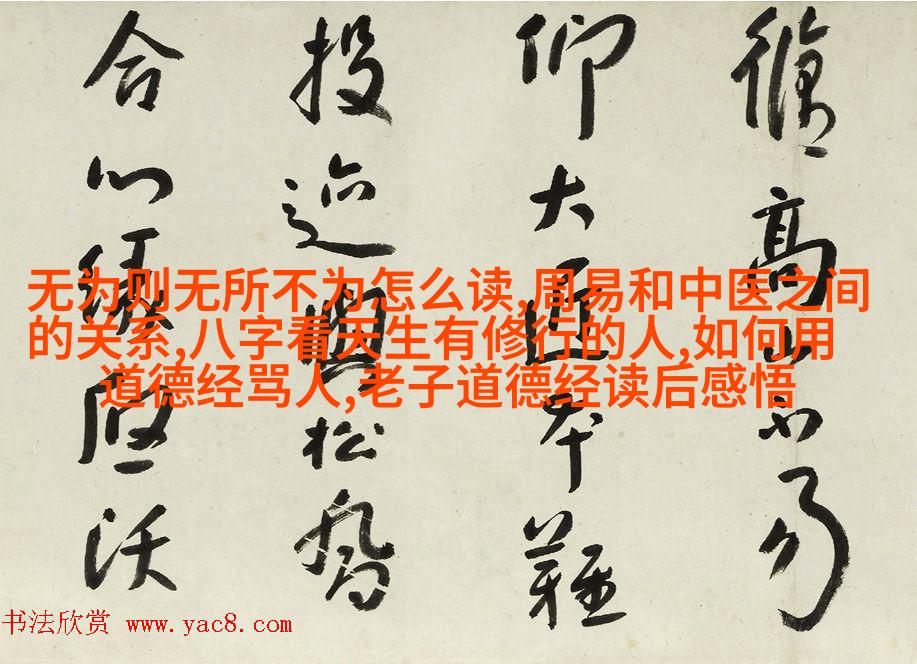 高山不易
仰大匠本難
投迹松
合沃
无为则无所不为怎么读,周易和中医之间
的关系,八字看天生有修行的人,如何用
道德经骂人,老子道德经读后感悟
书法欣赏 www.yac8.com